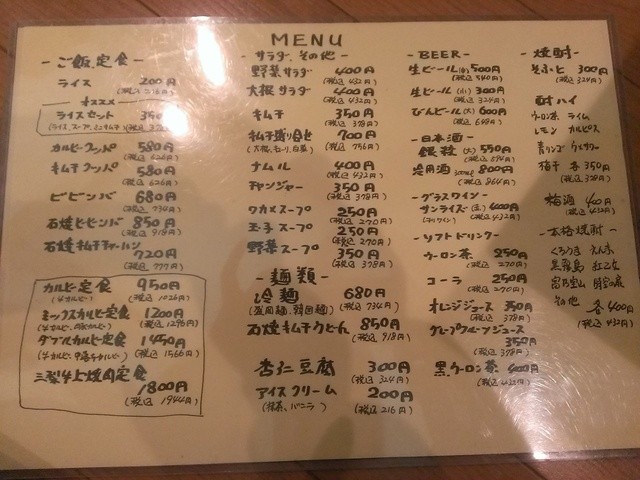 MENU
- ご飯、定食 -
ライス 200円
(税込 216円)
オススメ
ライスセット 350
(税込 378
カルビークッパ 580円
(税込 626円)
キムチクッパ 580円
(税込 626円)
ビビンバ 680円
(税込 734円)
石焼ビビンバ 850円
(税込 918円)
石焼キムチチャーハン
720円
(税込 777円)
カルビー定食 950円
(税込 1026円)
ミックスカルビ定食 1200円
(税込 1296円)
ダブルカルビ定食 1450円
(税込 1566円)
上焼肉定食
1800円
(税込 1944円)
- サラダ、その他 -
野菜サラダ 400円
(税込 432円)
大根サラダ 400円
(税込 432円)
キムチ 350円
(税込 378円)
キムチ盛り合せ 700円
(大根、キュウリ、白菜) (税込 756円)
ナムル 400円
(税込 432円)
チャンジャー 350円
(税込 378円)
ワカメスープ 250円
(税込 270円)
玉子スープ 250円
(税込 270円)
野菜スープ 350円
(税込 378円)
- 麺類 -
冷麺 680円
(盛岡麺、韓国麺) (税込 734円)
石焼キムチうどん 850円
(税込 918円)
杏仁豆腐 300円
(税込 324円)
アイスクリーム 200円
(抹茶、バニラ) (税込 216円)
- BEER -
生ビール(中) 500円
(税込 540円)
生ビール(小) 300円
(税込 324円)
びんビール(大) 600円
(税込 648円)
- 日本酒 -
550円
(税込 594円)
冷用酒 300ml 800円
(税込 864円)
- グラスワイン -
サンライズ 400円
(税込 432円)
- ソフトドリンク -
ウーロン茶 250円
(税込 270円)
コーラ 250円
(税込 270円)
オレンジジュース 350円
(税込 378円)
グレープフルーツジュース
350円
(税込 378円)
黒ウーロン茶 400円
(税込 432円)
- 焼酎 -
300円
(税込 324円)
酎ハイ
ウーロン茶 ライム
レモン カルピス
青リンゴ
梅干 各350円
(税込 378円)
梅酒 400円
(税込 432円)
- 本格焼酎 -
くろうま
黒霧島
その他 各400円
(税込 432円)